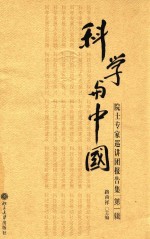 科学与中國
院士专家巡讲团报告集 第一辑
路甬祥 主编
北京大学出版社